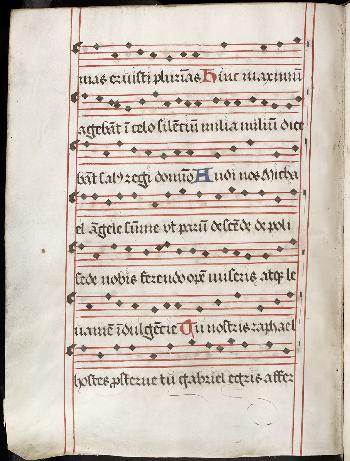 mas eruisti plurīas Hinc maximū
agebāt ī celo silētiū milia miliū dice
bāt salꝰ regi domīo Audi nos Micha
el āgele sūme vt parū descēde de poli
sede nobis ferendo opē miseris atqꝫ le
uamē īdulgētie Tu nostris raphael
hostes ꝓsterne tu gabriel egris affer